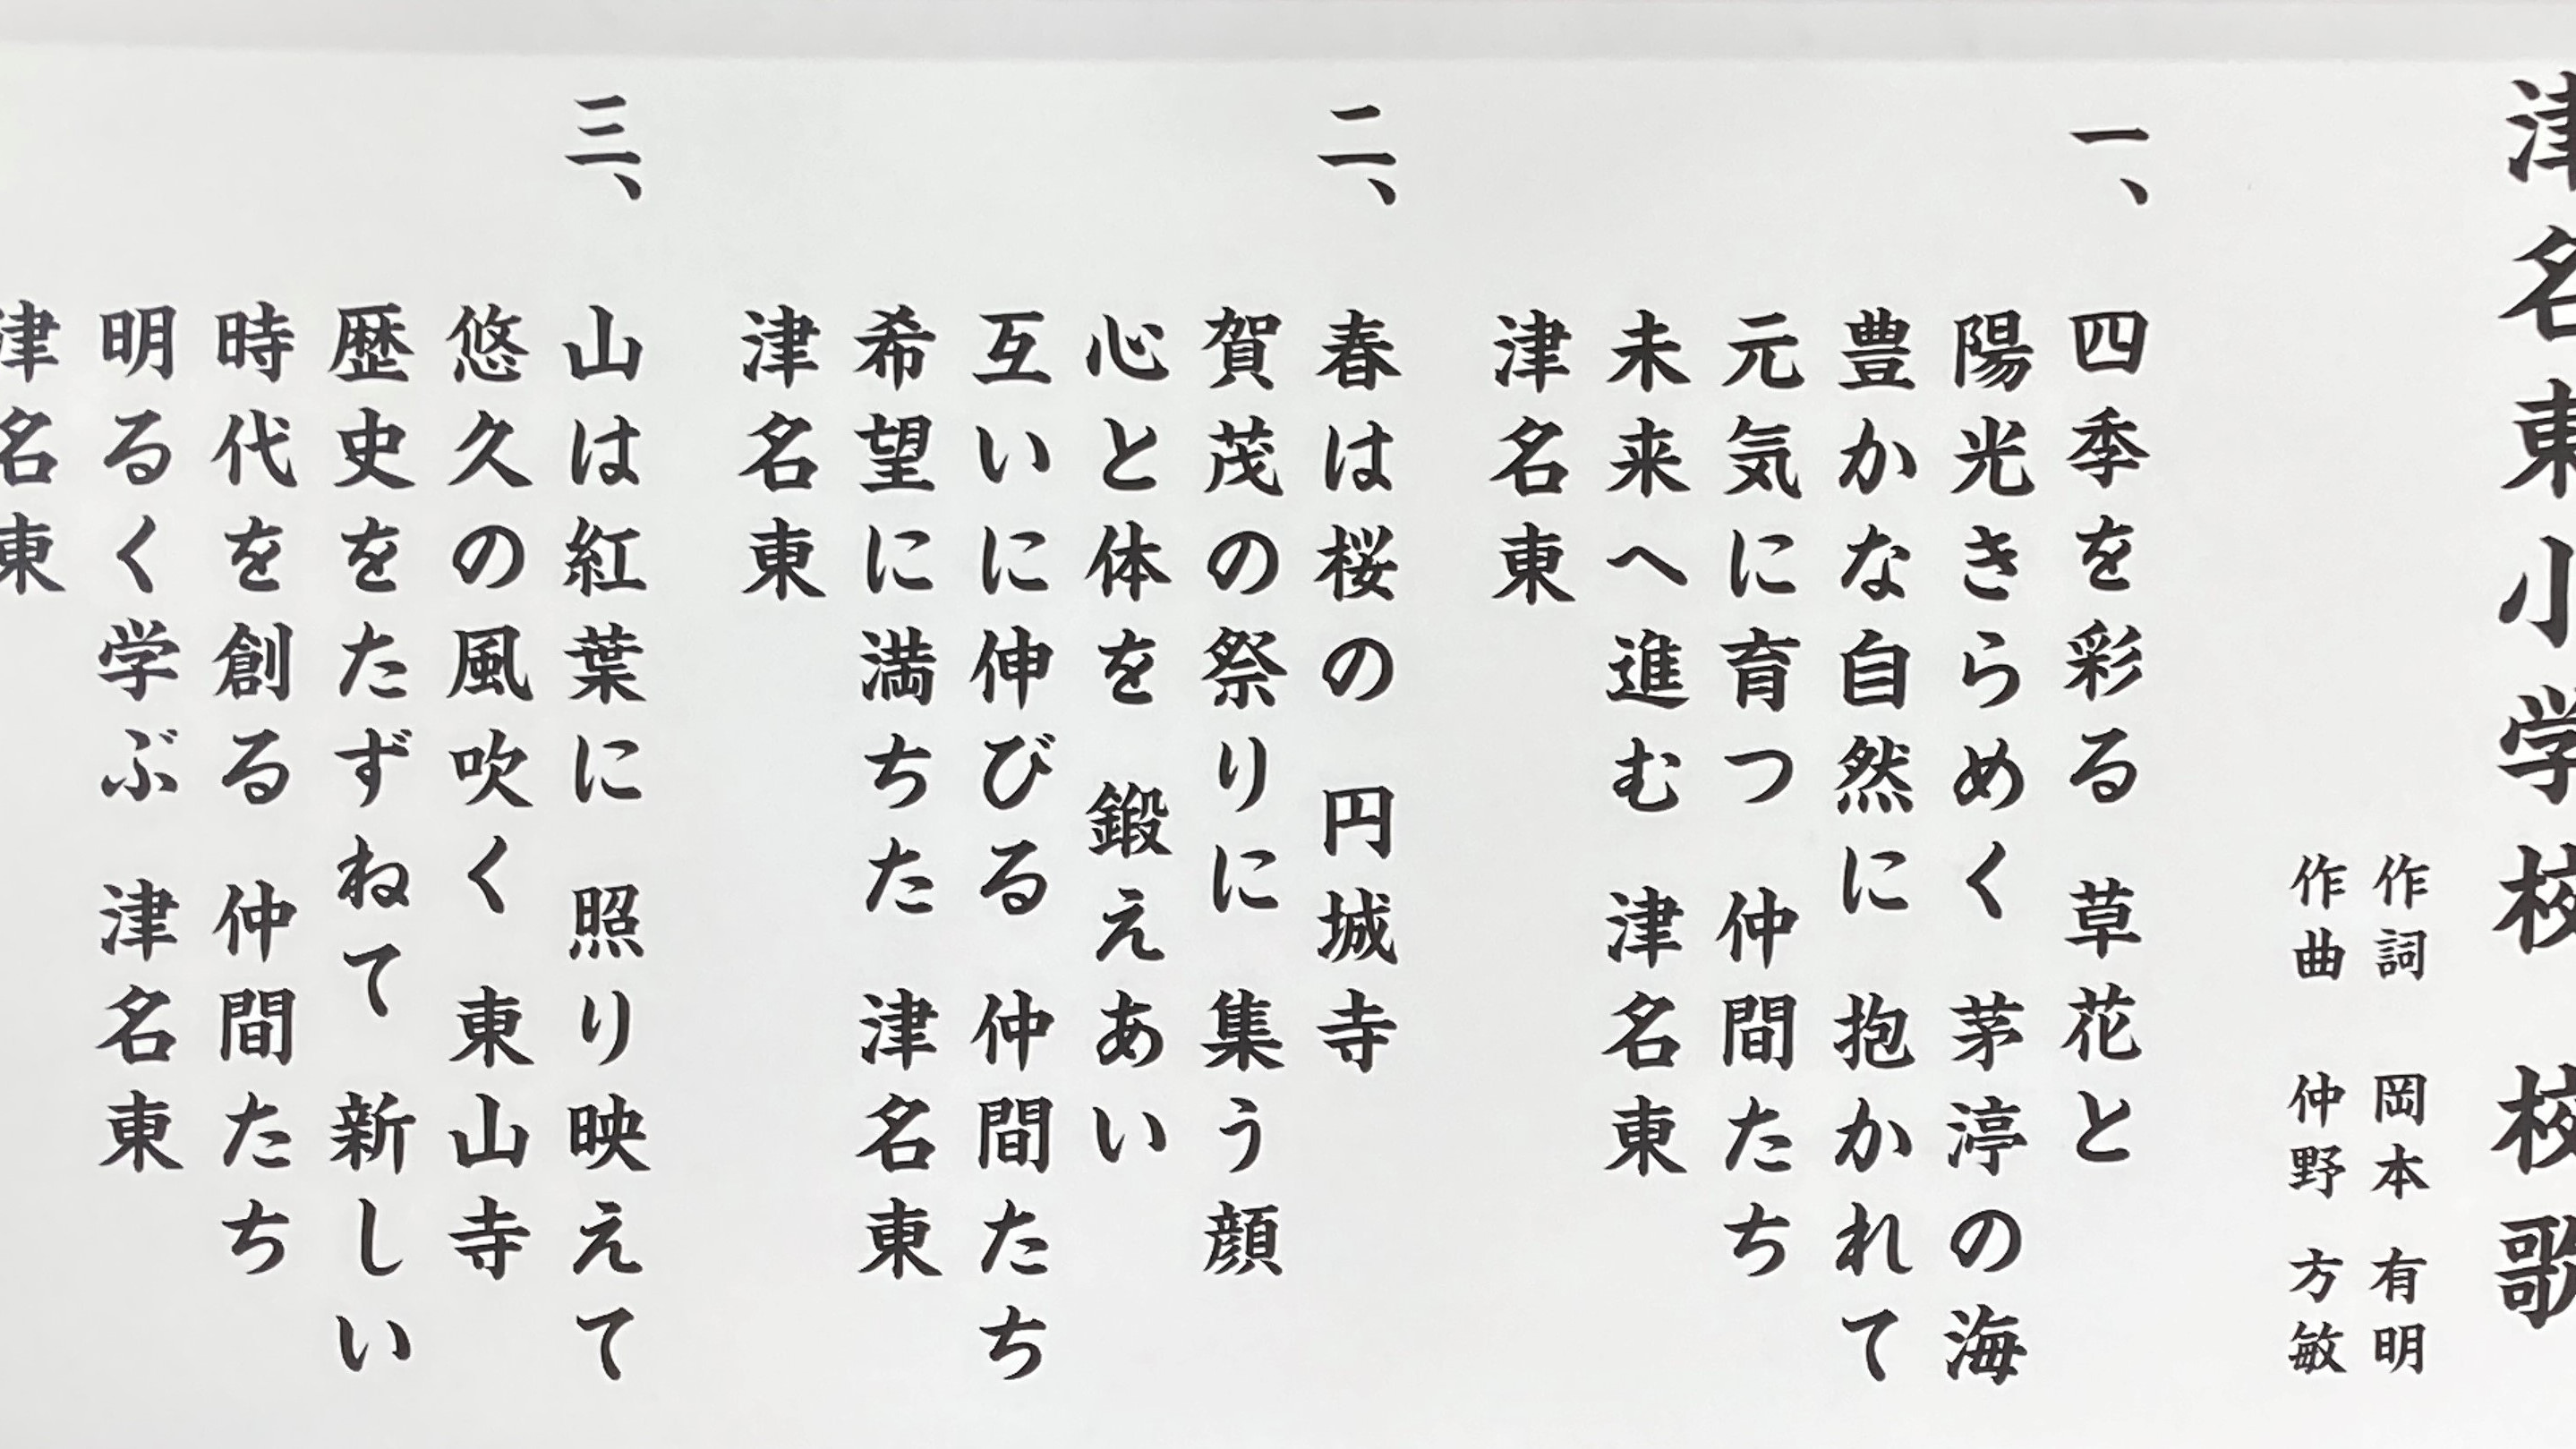 津名東小学校 校歌
作詞 岡本 有明
作曲 仲野 方敏
一、 四季を彩る 草花と
陽光きらめく 茅渟の海
豊かな自然に 抱かれて
元気に育つ 仲間たち
未来へ進む 津名東
津名東
二、 春は桜の 円城寺
賀茂の祭りに 集う顔
心と体を 鍛えあい
互いに伸びる 仲間たち
希望に満ちた 津名東
津名東
三、 山は紅葉に 照り映えて
悠久の風吹く 東山寺
歴史をたずねて 新しい
時代を創る 仲間たち
明るく学ぶ 津名東
津名東